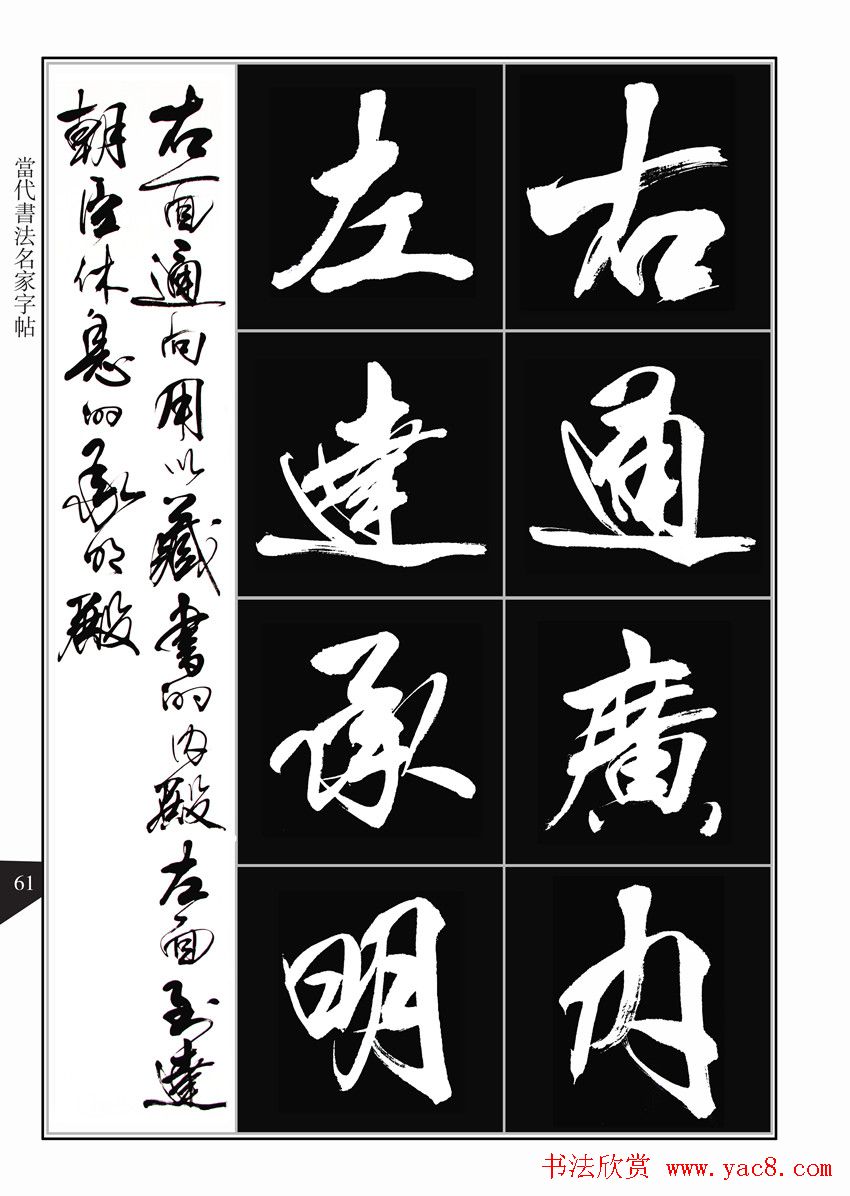 右通廣内
左達承明
右面通向用以藏書的内殿左面到達
朝臣休息的承明殿
當代書法名家字帖
61
书法欣赏 www.yac8.com